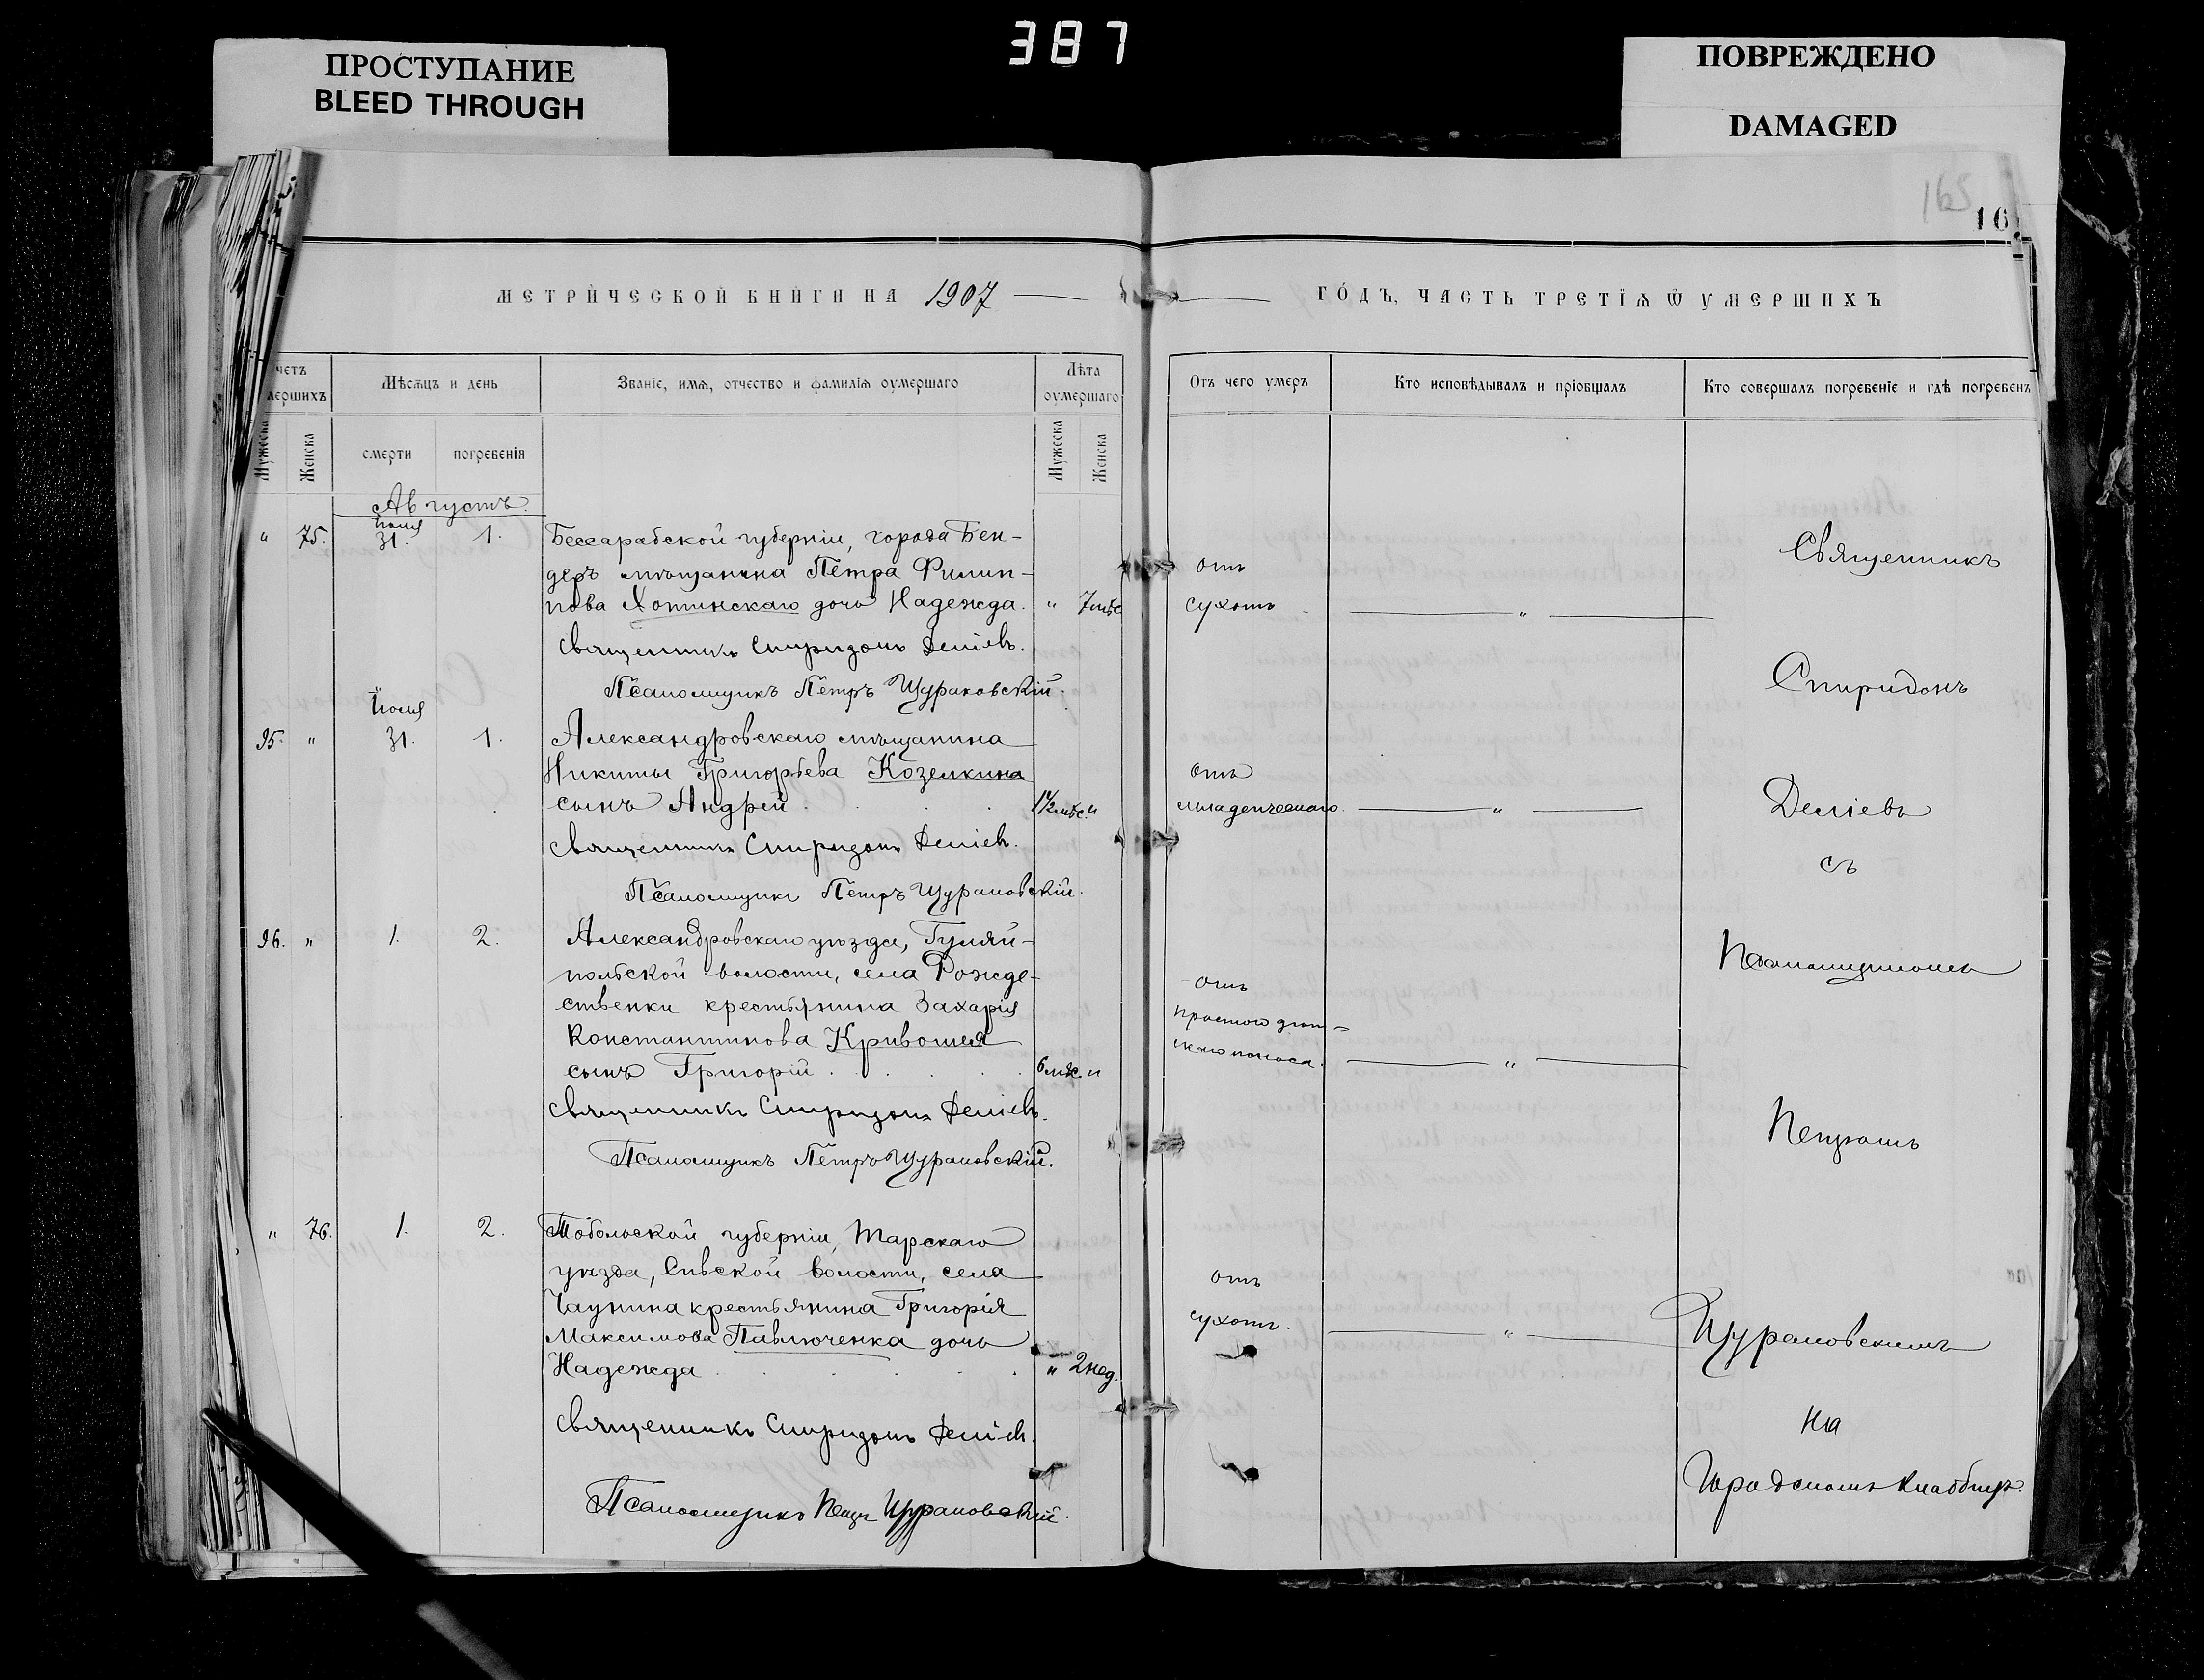 387
ПРОСТУПАНИЕ
BLEED THROUGH
ПОВРЕЖДЕНО
DAMAGED
165
16
МЕТРИЧЕСКОЙ КНИГИ НА 1907
ГОДЪ, ЧАСТЬ ТРЕТІЯ Ѿ УМЕРШИХЪ
четъ
мершихъ
Мужеска
Женска
Мѣсяцъ и день
смерти
погребенія
Званіе, имя, отчество и фамилія оумершаго
Лѣта
оумершаго
Мужеска
Женска
Отъ чего умеръ
Кто исповѣдывалъ и пріобщалъ
Кто совершалъ погребеніе и гдѣ погребенъ
Августъ.
Іюля
" 75. 31. 1. Бессарабской губерніи, города Бен-
деръ мѣщанина Петра Филип-
пова Хотинскаго дочь Надежда. " 7 мѣс
отъ
сухотъ "
Священникъ Спиридонъ Деміевъ.
Псаломщикъ Петръ Щурановскій.
Іюля
95. " 31. 1. Александровскаго мѣщанина
Никиты Григорьева Козелкина
сынъ Андрей 1½ мѣс. "
отъ
младенческаго "
Священникъ Спиридонъ Деміевъ.
Псаломщикъ Петръ Щурановскій.
96. " 1. 2. Александровскаго уѣзда, Гуляй-
польской волости, села Рожде-
ственки крестьянина Захарія
Константинова Кривошея
сынъ Григорій 6 мѣс. "
отъ
простого дѣт-
скаго поноса. "
Священникъ Спиридонъ Деміевъ.
Псаломщикъ Петръ Щурановскій.
" 76. 1. 2. Тобольской губерніи, Тарскаго
уѣзда, волости, села
крестьянина Григорія
Максимова Павлюченка дочь
Надежда " 2 нед.
отъ
сухотъ. "
Священникъ Спиридонъ Деміевъ.
Псаломщикъ Петръ Щурановскій.
Священникъ
Спиридонъ
Деміевъ
съ
Псаломщикомъ
Петромъ
Щурановскимъ
на
Городскомъ кладбищѣ.